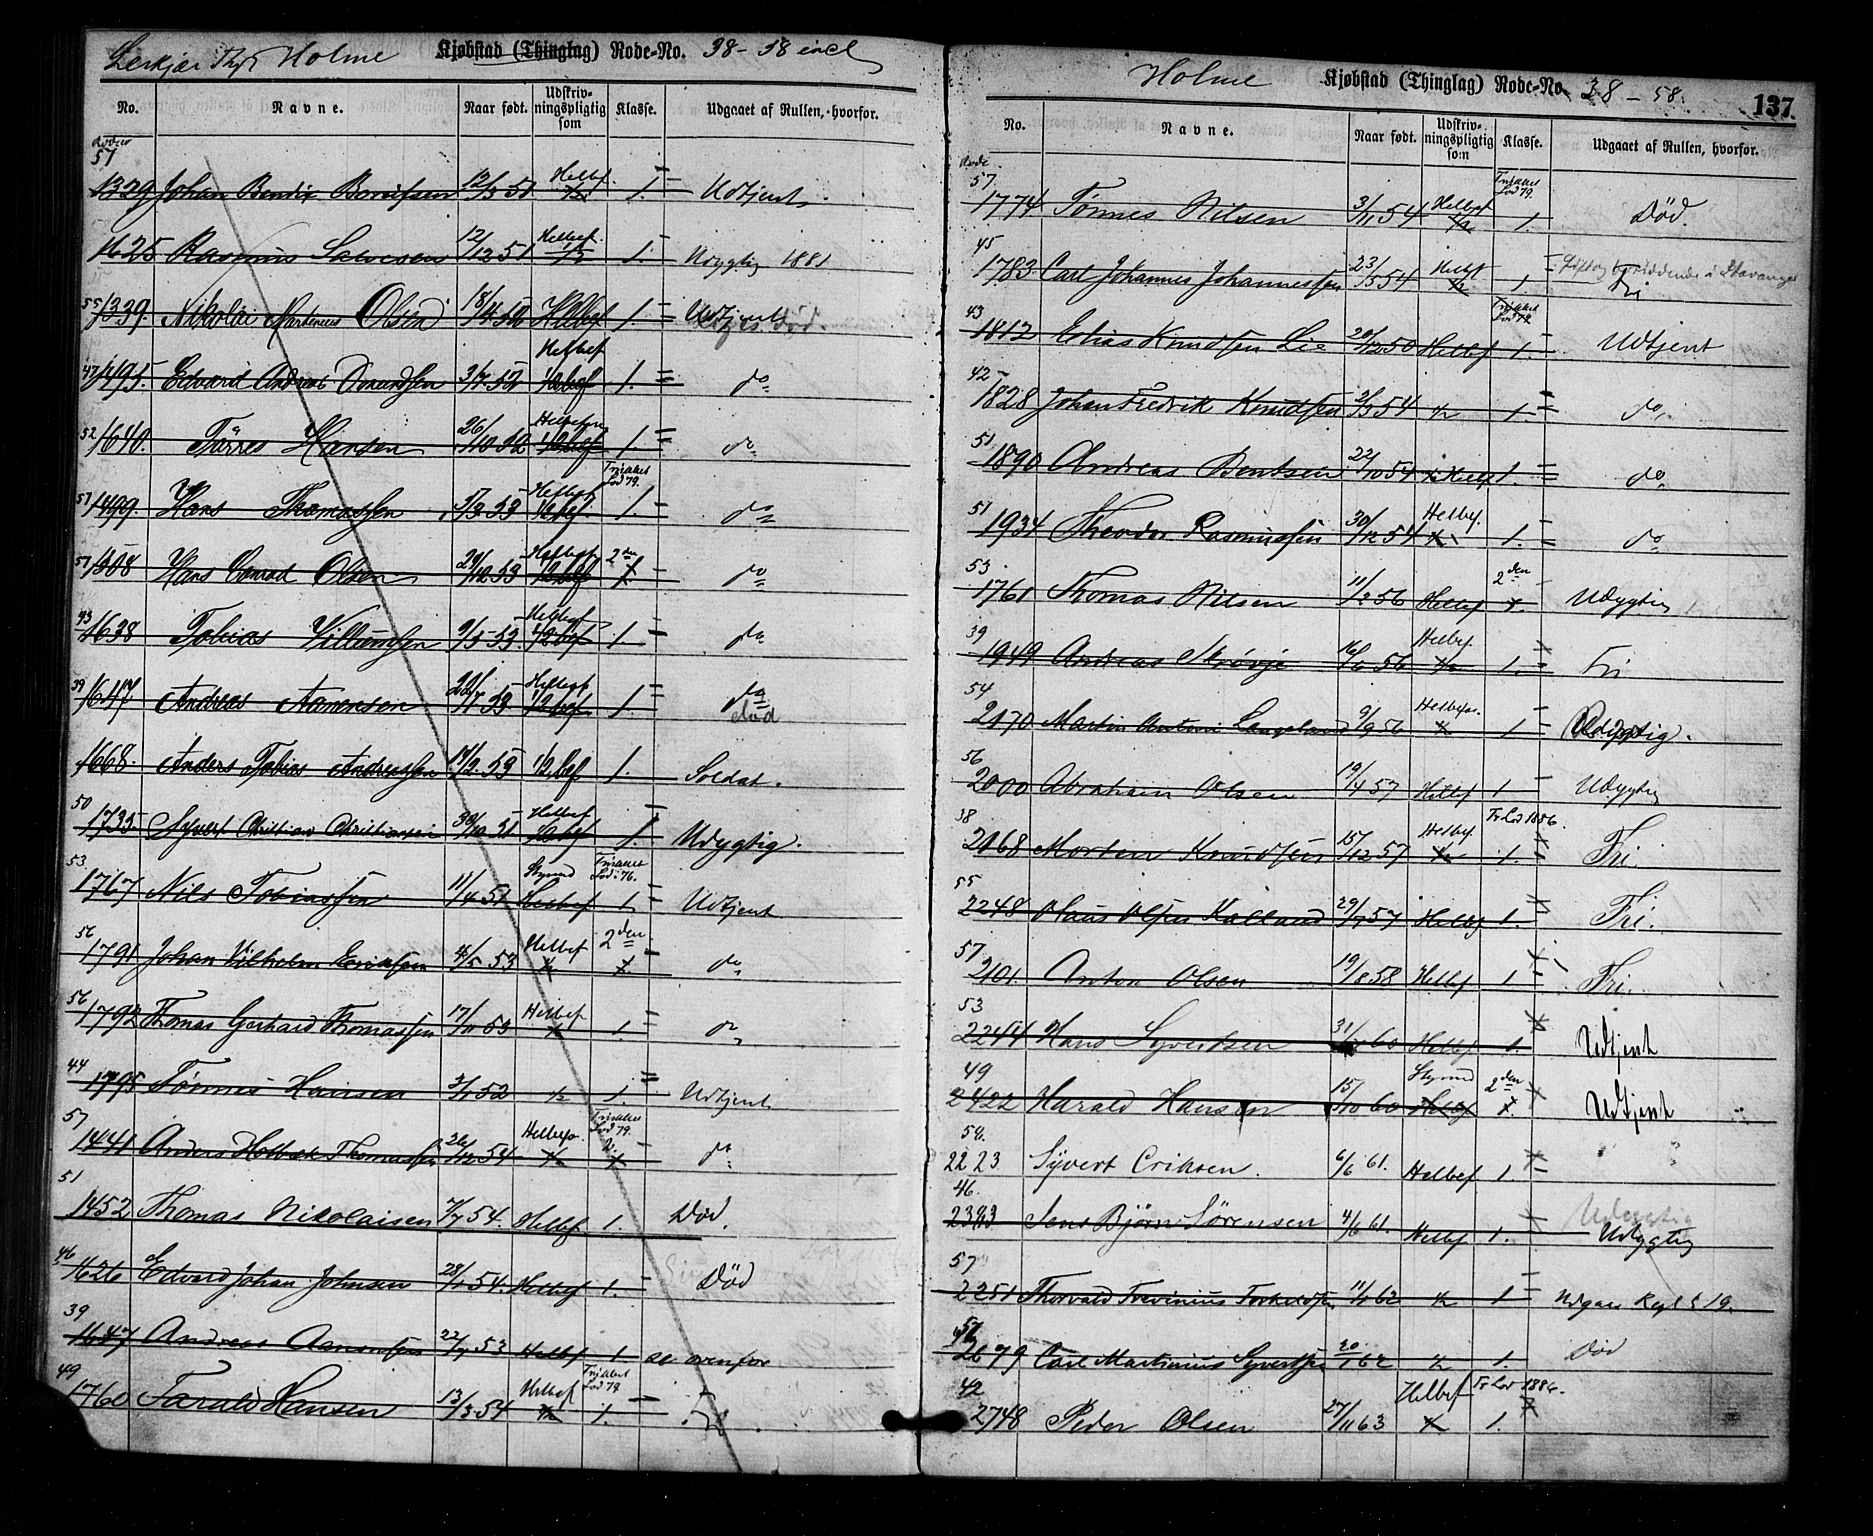 Holme Kjøbstad (Thinglag) Rode-No. 38-58 incl
No. Navne. Naar født. Udskriv-ningspligtig som Klasse. Udgaaet af Rullen, hvorfor.
57
1329 Johan Bendix 12/3 51 Helbef. 1. Udtjent
1625 Rasmus Salvesen 12/12 51 Helbef. 1/2 1. Udygtig 1881
55 1339. Nikolai Martinius Olsen 18/4 52 Helbef 1. Udtjent Død.
47 1495. Edvard Andreas 3/7 52 Helbef 1/2bef 1. do
52 1640. Tørres Hansen 26/10 52 1/2bef 1. do
57 1499. Hans Thomassen 3 53 Helbef 1/2bef. Lod 79. 1. do
57 1508 Hans Conrad Olsen 53 1/2bef 2den do
43 1638 Tobias Villumsen 9/5 53. Helbef 1/2bef 1. do
39 1647 Andreas Aanensen 22/7 53 1/2bef 1. do død
1668. Anders Tobias Andreassen 2. 53 1/2bef 1. Soldat.
50 1735 Syvert Christian Christiansen 30/10 51 Helbef 1/2bef 1. Udygtig.
53 1767 Nils Tobiassen 11/4 51 Helbef Lod 76. 1 Udtjent
56 1791 Johan Vilhelm Eriksen 5 53 Helbef 1/2 2den do
56 1792 Thomas Gerhard Thomassen 17/10 53 Helbef 1. do
44 1795 Tønnes Hansen 52 1/2 1. Udtjent
57 1441 Anders Holbæk Thomassen 26/12 54 Lod 79. do
51 1452 Thomas Nikolaisen 7/7 54. Helbef 1. Død.
46 1626 Edvard Johan Johnsen 28/1 54. Helbef 1. Død
39 1647 Andreas Aanensen 22/7 53 Helbef 1. se ovenfor
49 1760 Tarald Hansen 13/3 54 Helbef 1/2 Lod 79 1. Fri.
Holme Kjøbstad (Thinglag) Rode-No. 38-58. 137.
No. Navne. Naar født. Udskriv-ningspligtig som Klasse. Udgaaet af Rullen, hvorfor.
57
1774 Tønnes Nilsen 3/11 54 1/2 Lod 79. 1. Død.
45 1783 Carl Johannes Johannessen 23/3 54 Helbef 1/2 1 Gift og i Stavanger Fri
43 1812 Elias Knudsen Lie 20/12 50 Helbef Lod 79 1. Udtjent
42 1828 Johan Fredrik Knudsen 2/3 54 1/2 1. do
51 1890 Andreas Bentsen 22/10 54 Helbef 1. do
51 1934 Theodor Rasmussen 30/12 54 Helbef. 1. do
53 1761 Thomas Nilsen 11/2 56 Helbef 2den Udygtig
39 1949 Andreas 16/6 56 Helbef. 1/2 1. Fri
54 2170 Martin Antoni Langeland 9/9 56 1 Udygtig.
56 2000 Abraham Olsen 19/4 57 Helbef 1 Udygtig
38 2168 Morten Knudsen 15/12 57 Helbef. 1/2 Fr Lod 1886. 1. Fri
55 2248 Olaus Olsen Kalland 29/7 57 Helbef 1. Fri.
57 2101. Anton Olsen 19/8 58 Helbef 1 Fri.
53 2244 Hans Syvertsen 31 60 Helbef 1. Udtjent
49 2422 Harald Hansen 15/10 60 Helbef 2den Udtjent
58. 2223. Syvert Eriksen. 6/6 61. Helbef 1. " "
46. 2383 Jens Bjørn Sørensen 4/6 61. Helbef 1. Udygtig Udygtig
57 2251 Thorvald Torkeldsen 11/1 62 1/2 1 Udgaar Kgl § 19.
2679 Carl Martinius Syvertsen 20/1 62 1/2 1. Død
42 2748 Peder Olsen 27/11 63 Helbef Fr Lod 1886. 1.